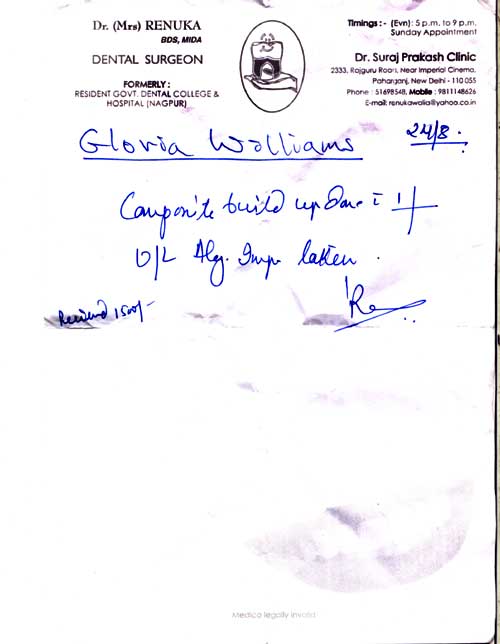 Dr. (Mrs) RENUKA
BDS, MIDA
DENTAL SURGEON
FORMERLY :
RESIDENT GOVT. DENTAL COLLEGE &
HOSPITAL (NAGPUR)
Timings : - (Evn): 5 p.m. to 9 p.m.
Sunday Appointment
Dr. Suraj Prakash Clinic
2333, Rajguru Road, Near Imperial Cinema,
Paharganj, New Delhi - 110 055
Phone : 51698548, Mobile : 9811148626
E-mail: renukawalia@yahoo.co.in
Gloria Williams
24/8.
Composite build up done
U/L Alg. Imp.
Received 1500/-
Medico legally invalid